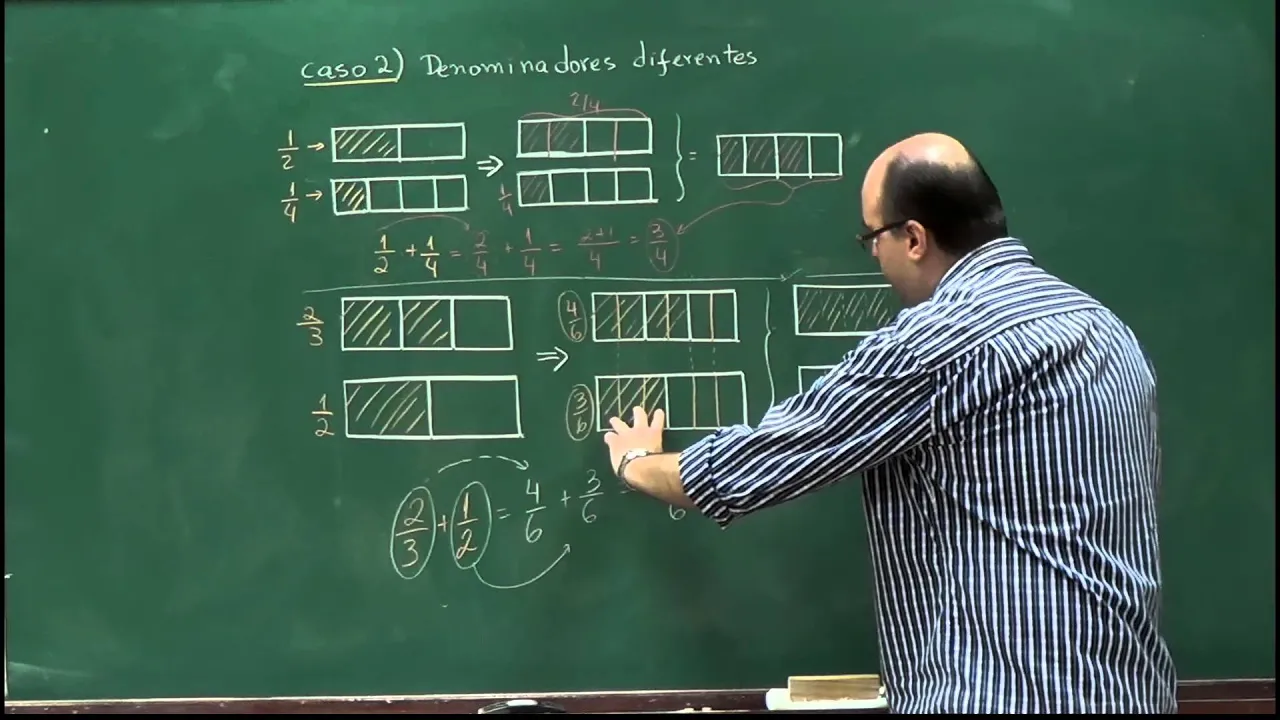 Caso 2) Denominadores diferentes
2/4
1/2 →
⇒
=
1/4 →
1/4
1/2 + 1/4 = 2/4 + 1/4 = 2+1/4 = 3/4
2/3
4/6
⇒
1/2
3/6
2/3 + 1/2 = 4/6 + 3/6 =
6